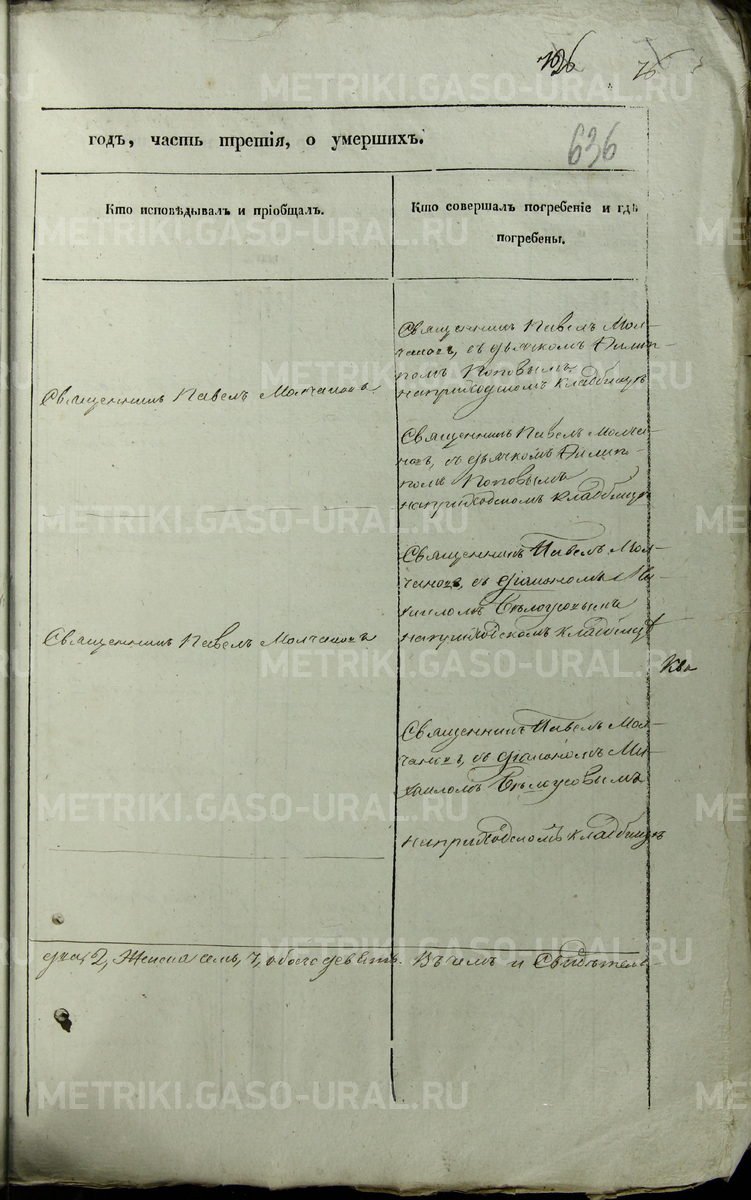 636
годъ, часть третія, о умершихъ.
Кто исповѣдывалъ и пріобщалъ.
Кто совершалъ погребеніе и гдѣ
погребены.
Священникъ Павелъ Молчановъ
Священникъ Павелъ Мол-
чановъ, съ дьячкомъ Филип-
помъ Поповымъ
на приходскомъ кладбищѣ
Священникъ Павелъ Молча-
новъ, съ дьячкомъ Филип-
помъ Поповымъ
на приходскомъ кладбищѣ
Священникъ Павелъ Молчановъ
Священникъ Павелъ Мол-
чановъ, съ діакономъ Ми-
хаиломъ Бѣлоусовымъ
на приходскомъ кладбищѣ
Священникъ Павелъ Мол-
чановъ, съ діакономъ Ми-
хаиломъ Бѣлоусовымъ
на приходскомъ кладбищѣ
два, 2, Женска семь, 7, обоего девять. Въ чемъ и Свидѣтель
METRIKI.GASO-URAL.RU